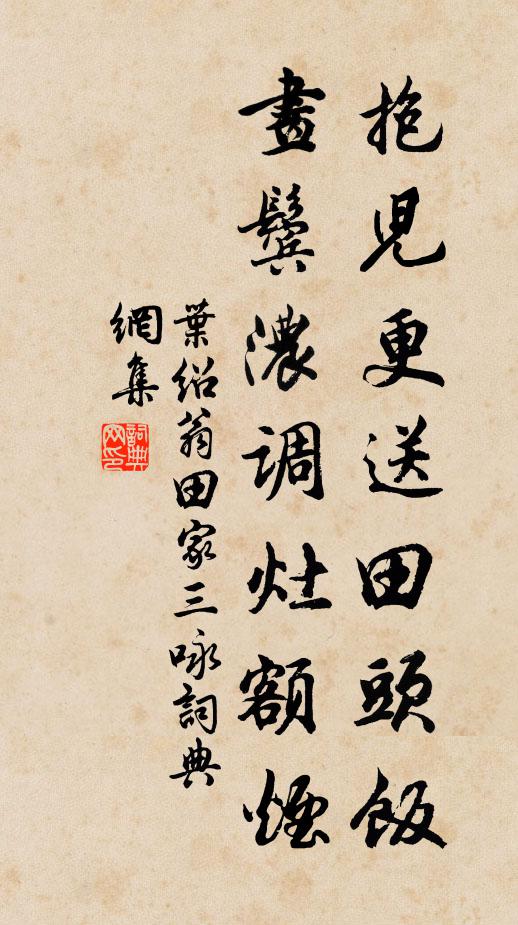 抱児更送田頭飯
畫鬢濃調灶額煙
葉紹翁田家三詠詞典
網集
詞典
网印